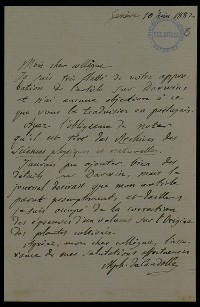 Genève 10 juin 1882
Mon cher collègue
Je suis très flatté de votre approbation
de l'article sur Darwin
et n'ai aucune objection à ce
que vous le traduisiez en portugais.
Ayez l'obligeance de noter
qu'il est tiré des Archives des
sciences physiques et naturelles.
J'aurais pu ajouter bien des
détails sur Darwin, mais le
journal désirait que mon article
parût promptement, et d'ailleurs
je suis occupé de la correction
des épreuves d'un volume sur l'Origine
des plantes cultivées.
Agréez, mon cher collègue, l'assurance
de mes salutations
Alph. de Candolle